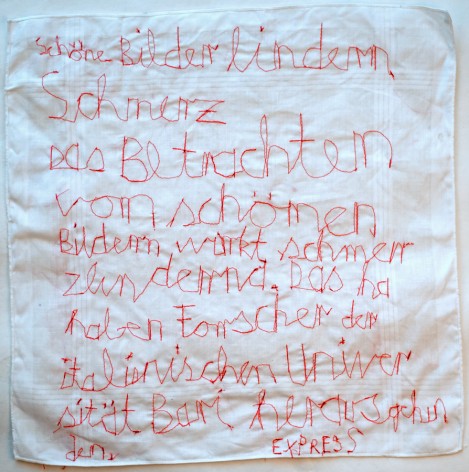 Schöne Bilder lindern
Schmerz
Das Betrachten
von schönen
Bildern wirkt schmerr
zlindernd. Das ha
haben Forscher der
italienischen Univer
sität Bari herausgefun
den.
EXPRESS